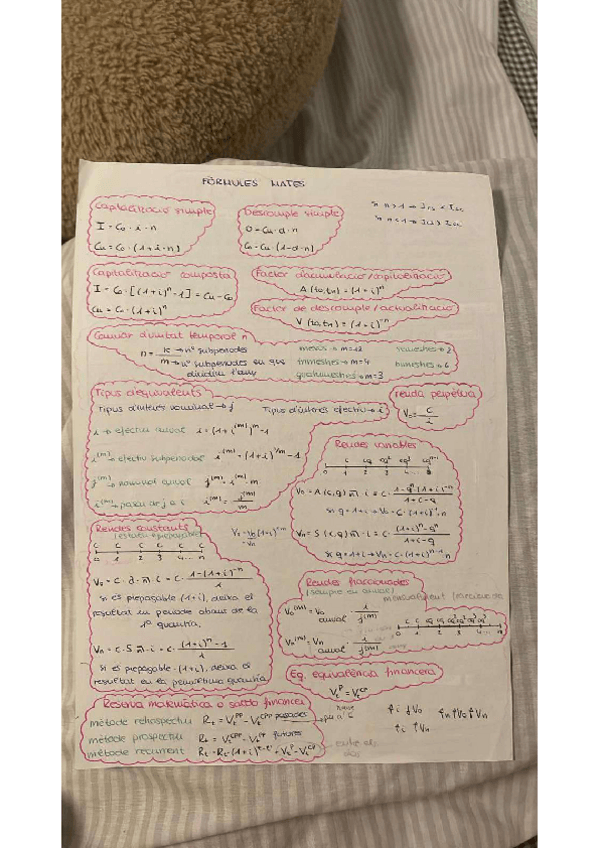 FÓRMULES MATES
Capitalització simple
I = C₀ · i · n
Cn = C₀ · (1 + i · n)
Descompte simple
D = Cn · d · n
C₀ = Cn · (1 - d · n)
Capitalització composta
I = C₀ · [(1+i)ⁿ - 1] = Cn - C₀
Cn = C₀ · (1+i)ⁿ
Factor d'acumulació/capitalització
A (t₀, tn) = (1+i)ⁿ
Factor de descompte/actualització
V (t₀, tn) = (1+i)⁻ⁿ
Canviar d'unitat temporal n
n = k → nº subperíodes
m → nº subperíodes en que dividim l'any
mesos → m = 12
trimestres → m = 4
quatrimestres → m = 3
semestres → 2
bimestres → 6
Tipus d'equivalents
Tipus d'interès nominal → j Tipus d'interès efectiu → i
i → efectiu anual i = (1 + i⁽ᵐ⁾)ᵐ - 1
i⁽ᵐ⁾ → efectiu subperíode i⁽ᵐ⁾ = (1+i)^(1/m) - 1
j⁽ᵐ⁾ → nominal anual j⁽ᵐ⁾ = i⁽ᵐ⁾ · m
i⁽ᵐ⁾ → passar de j a i i⁽ᵐ⁾ = j⁽ᵐ⁾/m
renda perpètua
V₀ = C/i
Rendes variables
C Cq Cq² Cq³ Cqⁿ⁻¹
0 1 2 3 4 ... n
V₀ = A (c,q) n̅ · i = C · (1 - qⁿ(1+i)⁻ⁿ)/(1+i-q)
si q = 1+i → V₀ = C · (1+i)⁻¹ · n
Vn = S (c,q) n̅ · i = C · ((1+i)ⁿ - qⁿ)/(1+i-q)
si q = 1+i → Vn = C · (1+i)ⁿ⁻¹ · n
Rendes constants
C C C C C C
0 1 2 3 4 ... n
V₀ = C · a · n̅ · i = C · (1-(1+i)⁻ⁿ)/i
si és prepagable (1+i), deixa el
resultat en període abans de la
1ª quantia.
Vn = C · S n̅ · i = C · ((1+i)ⁿ - 1)/i
si és prepagable · (1+i), deixa el
resultat en la penúltima quantia
Rendes fraccionades
(sempre en anual)
V₀⁽ᵐ⁾ = V₀ anual · i/j⁽ᵐ⁾
Vn⁽ᵐ⁾ = Vn anual · i/j⁽ᵐ⁾
0 1 2 3 4 ... n
Eg. equivalència financera
Vₜᴾ = Vₜᶜᴾ
Reserva matemàtica o saldo financer
mètode retrospectiu Rₜ = Vₜᴾᴾ - Vₜᶜᴾᴾ passades
mètode prospectiu Rₜ = Vₜᶜᴾᶠ - Vₜᴾᶠ futures
mètode recurrent
↑i ↓V₀
↑i ↑Vn
↑n ↑V₀ ↑Vn